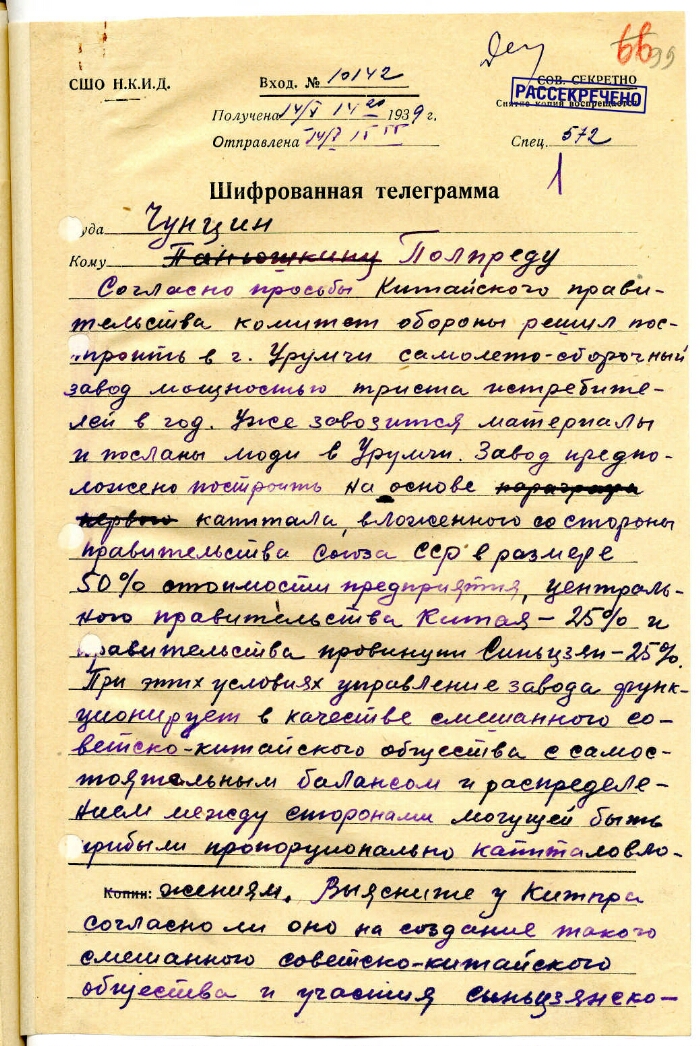 66
99
СШО Н.К.И.Д.
Вход. № 10142
СОВ. СЕКРЕТНО
Снятие копий воспрещается
РАССЕКРЕЧЕНО
Получена 14/V 14 20 1939 г.
Отправлена 14/V 15 55
Спец. 572
1
Шифрованная телеграмма
уда Чунцин
Кому Панюшкину Полпреду
Согласно просьбы Китайского прави-
тельства комитет обороны решил пос-
троить в г. Урумчи самолето-сборочный
завод мощностью триста истребите-
лей в год. Уже завозится материалы
и посланы люди в Урумчи. Завод предпо-
ложено построить на основе параграфа
первого капитала, вложенного со стороны
правительства Союза ССР в размере
50% стоимости предприятия, централь-
ного правительства Китая – 25% и
правительства провинции Синьцзян – 25%.
При этих условиях управление завода функ-
ционирует в качестве смешанного со-
ветско-китайского общества с самос-
тоятельным балансом и распределе-
нием между сторонами могущей быть
прибыли пропорционально капиталовло-
Копии: жениям. Выясните у Китпра
согласно ли оно на создание такого
смешанного советско-китайского
общества и участия синьцзянско-